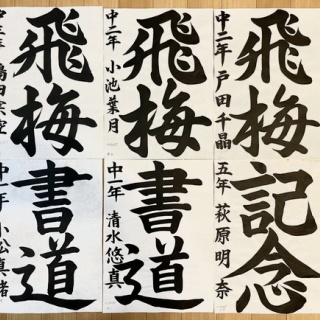 飛梅
中二年 戸田千晶
飛梅
中二年 小池葉月
飛梅
記念
五年 萩原明奈
書道
中一年 清水悠真
書道
中一年 小松真緒